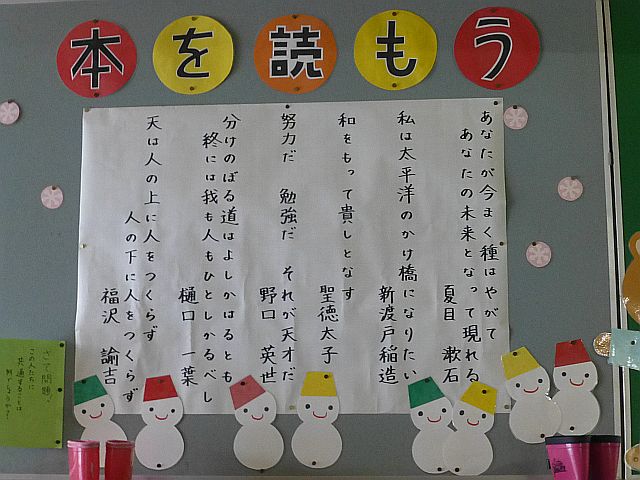 本を読もう
あなたが今まく種はやがて
あなたの未来となって現れる
夏目 漱石
私は太平洋のかけ橋になりたい
新渡戸稲造
和をもって貴しとなす
聖徳太子
努力だ 勉強だ それが天才だ
野口 英世
分けのぼる道はよしかはるとも
終には我も人もひとしかるべし
樋口 一葉
天は人の上に人をつくらず
人の下に人をつくらず
福沢 諭吉
さて問題。
この人たちに
共通することは
何でしょうか?